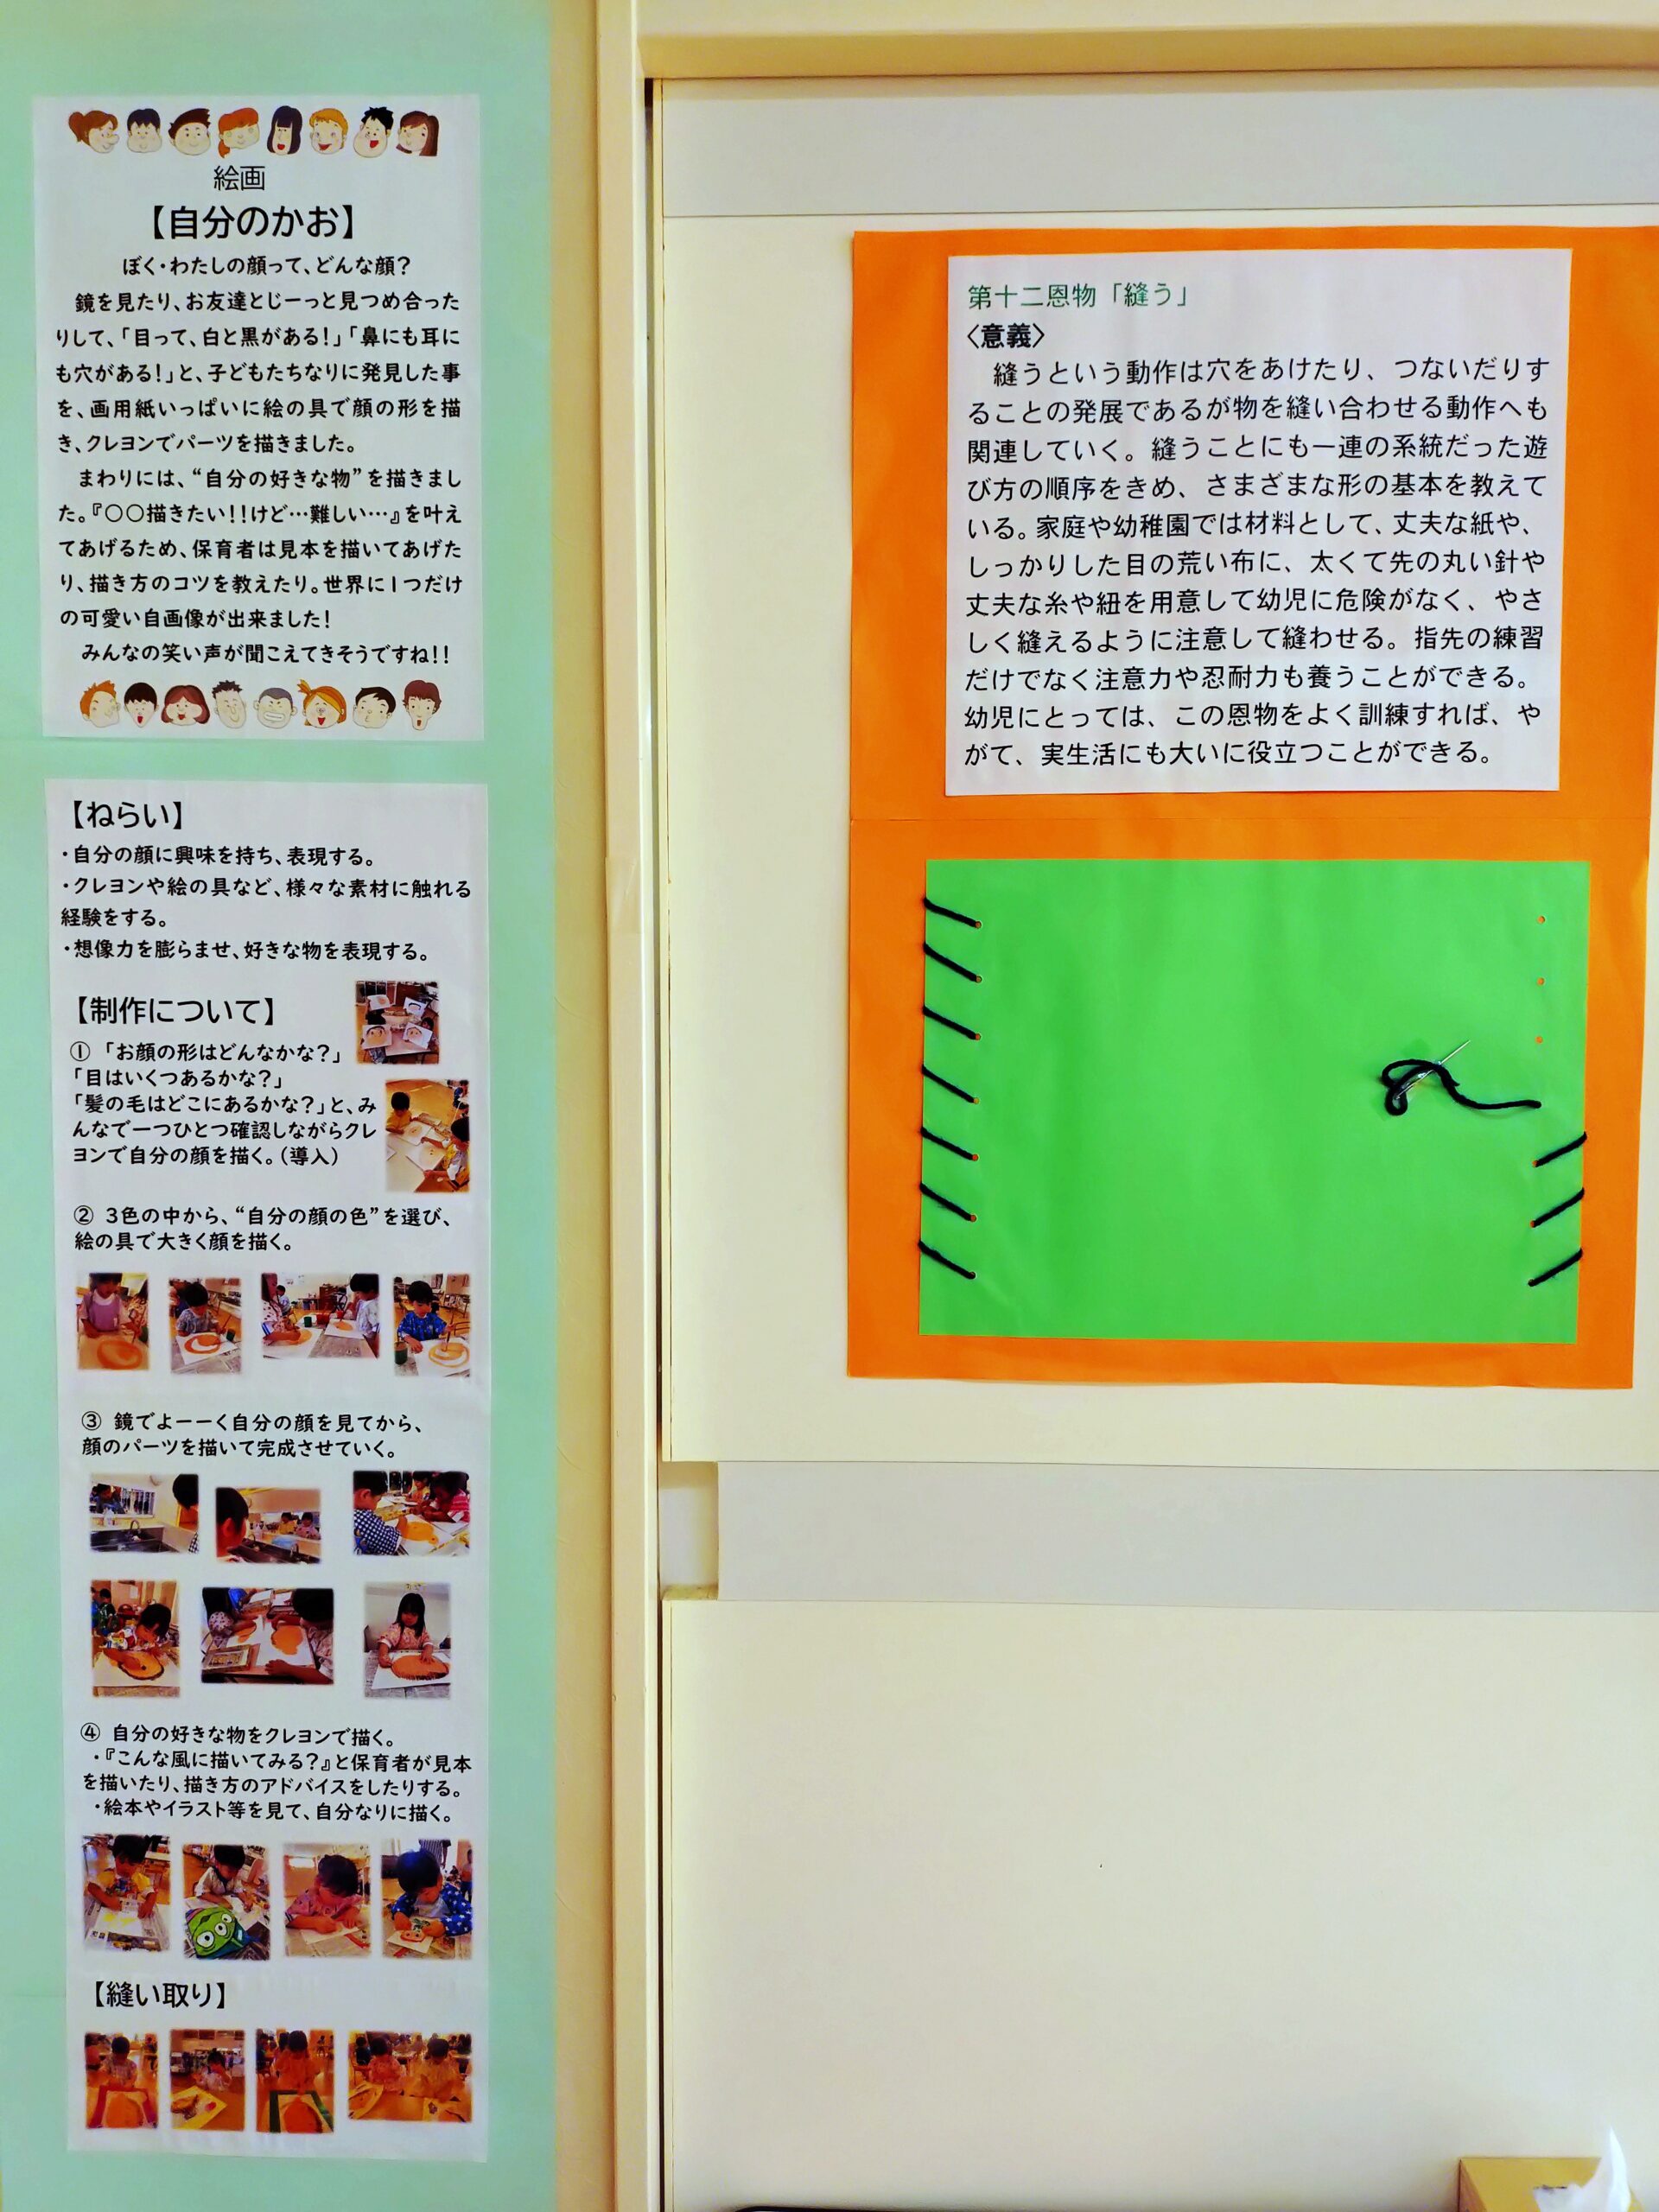 絵画
【自分のかお】
ぼく・わたしの顔って、どんな顔?
鏡を見たり、お友達とじーっと見つめ合った
りして、「目って、白と黒がある!」「鼻にも耳に
も穴がある!」と、子どもたちなりに発見した事
を、画用紙いっぱいに絵の具で顔の形を描
き、クレヨンでパーツを描きました。
まわりには、“自分の好きな物”を描きまし
た。『〇〇描きたい!!けど…難しい…』を叶え
てあげるため、保育者は見本を描いてあげた
り、描き方のコツを教えたり。世界に1つだけ
の可愛い自画像が出来ました!
みんなの笑い声が聞こえてきそうですね!!
【ねらい】
・自分の顔に興味を持ち、表現する。
・クレヨンや絵の具など、様々な素材に触れる
経験をする。
・想像力を膨らませ、好きな物を表現する。
【制作について】
① 「お顔の形はどんなかな?」
「目はいくつあるかな?」
「髪の毛はどこにあるかな?」と、み
んなで一つひとつ確認しながらクレ
ヨンで自分の顔を描く。(導入)
② 3色の中から、“自分の顔の色”を選び、
絵の具で大きく顔を描く。
③ 鏡でよーーく自分の顔を見てから、
顔のパーツを描いて完成させていく。
④ 自分の好きな物をクレヨンで描く。
・『こんな風に描いてみる?』と保育者が見本
を描いたり、描き方のアドバイスをしたりする。
・絵本やイラスト等を見て、自分なりに描く。
【縫い取り】
第十二恩物「縫う」
〈意義〉
縫うという動作は穴をあけたり、つないだりす
ることの発展であるが物を縫い合わせる動作へも
関連していく。縫うことにも一連の系統だった遊
び方の順序をきめ、さまざまな形の基本を教えて
いる。家庭や幼稚園では材料として、丈夫な紙や、
しっかりした目の荒い布に、太くて先の丸い針や
丈夫な糸や紐を用意して幼児に危険がなく、やさ
しく縫えるように注意して縫わせる。指先の練習
だけでなく注意力や忍耐力も養うことができる。
幼児にとっては、この恩物をよく訓練すれば、や
がて、実生活にも大いに役立つことができる。